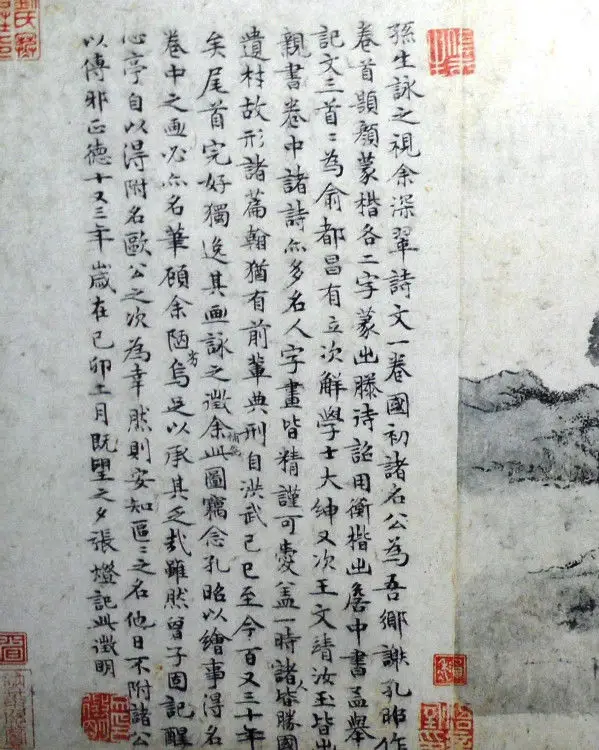 孫生詠之視余深翠詩文一卷國初諸名公為吾鄉謝孔昭作
卷首顯顏蒙楷各二字蒙出滕待詔用衡楷出詹中書孟舉
記文三首〻為俞都昌有立次解學士大紳又次王文靖汝玉皆出
親書卷中諸詩亦多名人字畫皆精謹可愛蓋一時諸人皆勝國
遺材故形諸篇翰猶有前輩典刑自洪武己巳至今百又三十年
矣尾首完好獨逸其画詠之徵余補為此圖竊念孔昭以繪事得名
卷中之画必亦名筆顧余陋劣烏足以承其乏哉雖然曾子固記醒
心亭自以得附名歐公之次為幸然則安知區〻之名他日不附諸公
以傳邪正德十又三年歲在己卯十二月既望之夕張燈記此徵明